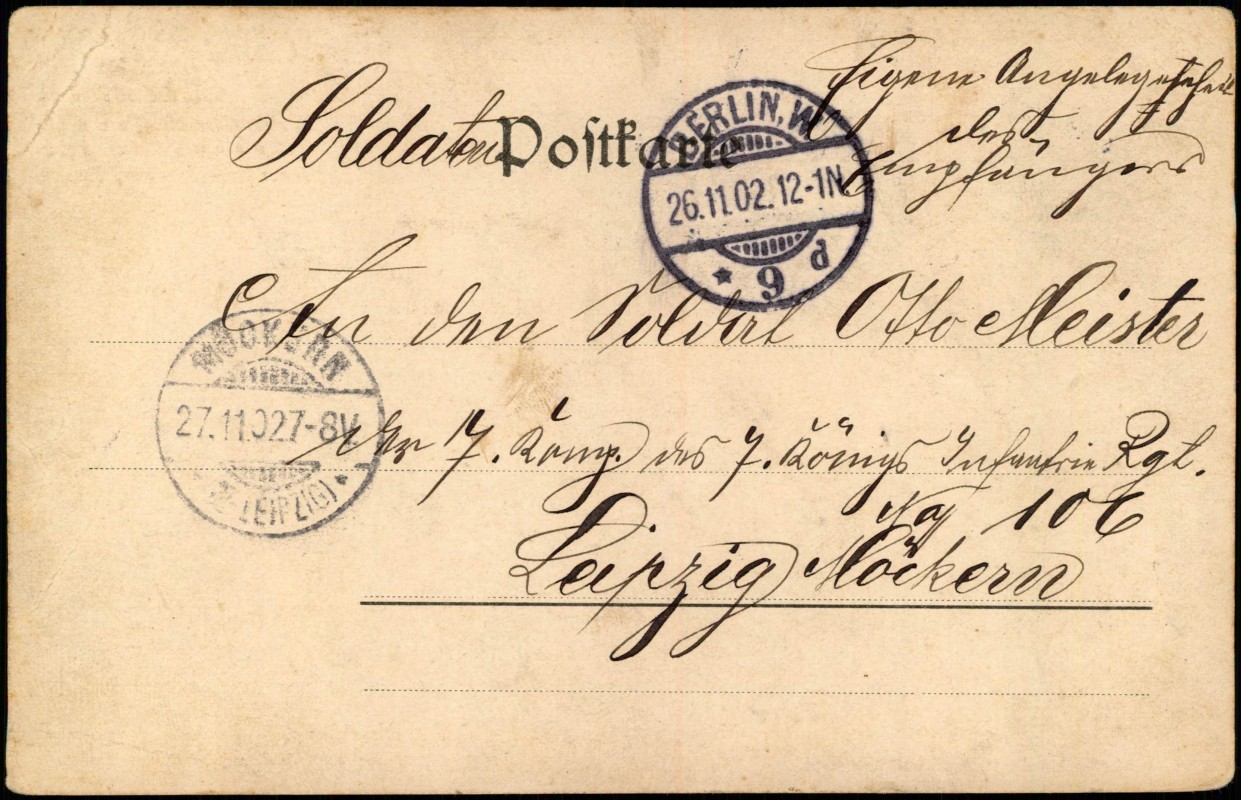 Soldaten Postkarte
Eigene Angelegenheit
des
Empfängers
BERLIN, W.
26.11.02.12-1N
* 9 d
An den Soldat Otto Meister
MÖCKERN
27.11.02 7-8V.
LEIPZIG
der 7. Komp. des 7. Königs Infantrie Rgt.
No 106
Leipzig Möckern